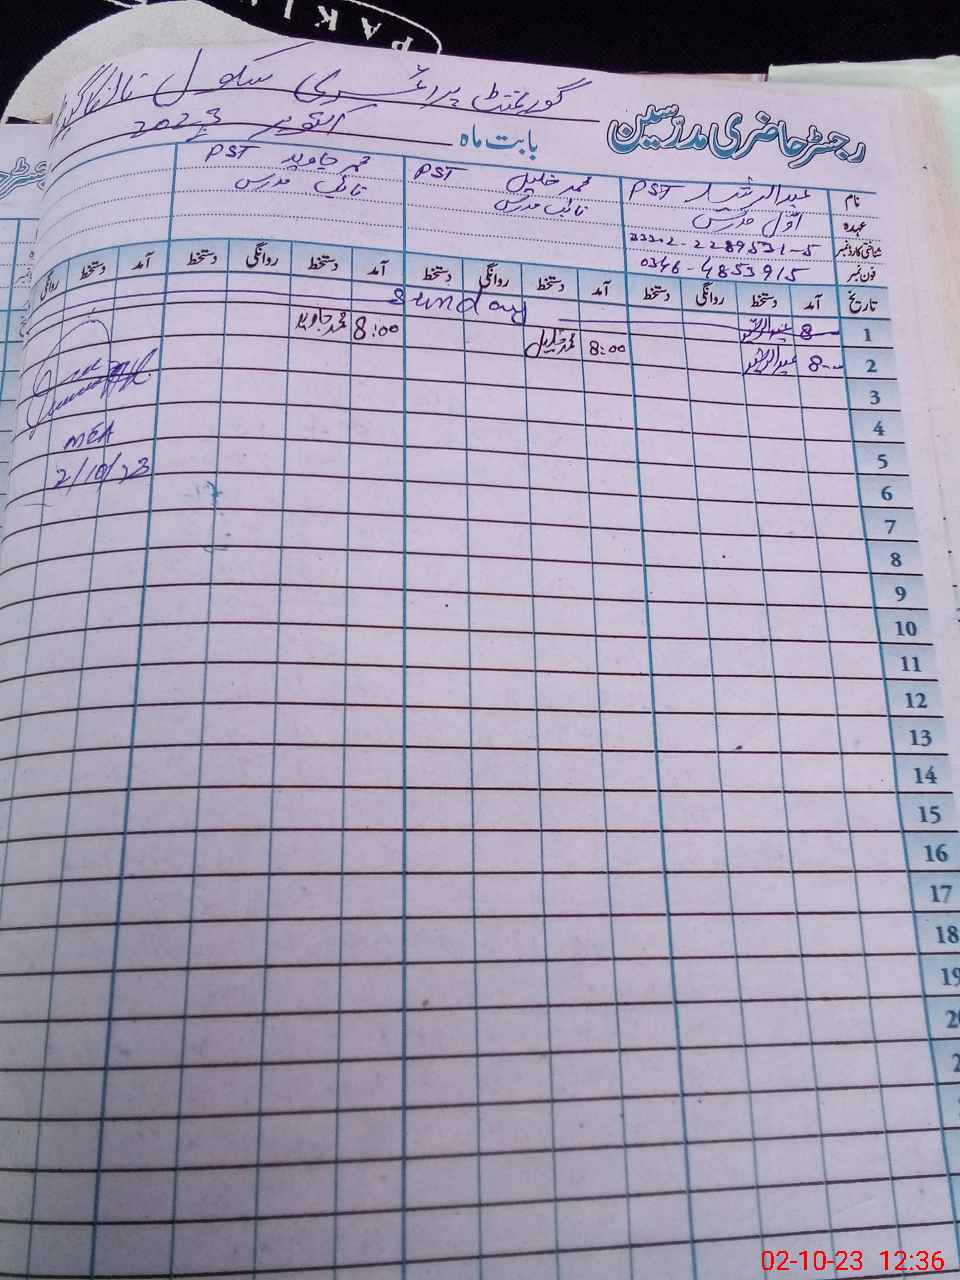 PAKIS
گورنمنٹ پرائمری سکول
رجسٹر حاضری مدرسین
بابت ماہ اکتوبر 2023
نام عبدالرشید PST محمد خلیل PST محمد جاوید PST
عہدہ اول مدرس نائب مدرس نائب مدرس
شناختی کارڈ نمبر 33202-2289531-5
فون نمبر 0346-4853915
تاریخ آمد دستخط روانگی دستخط آمد دستخط روانگی دستخط آمد دستخط روانگی دستخط آمد دستخط روانگی
1 8 عبدالرشید Sunday
2 8 عبدالرشید 8:00 محمد خلیل 8:00 محمد جاوید
3
4
5
6
7
8
9
10
11
12
13
14
15
16
17
18
19
20
2
MEA
2/10/23
02-10-23 12:36